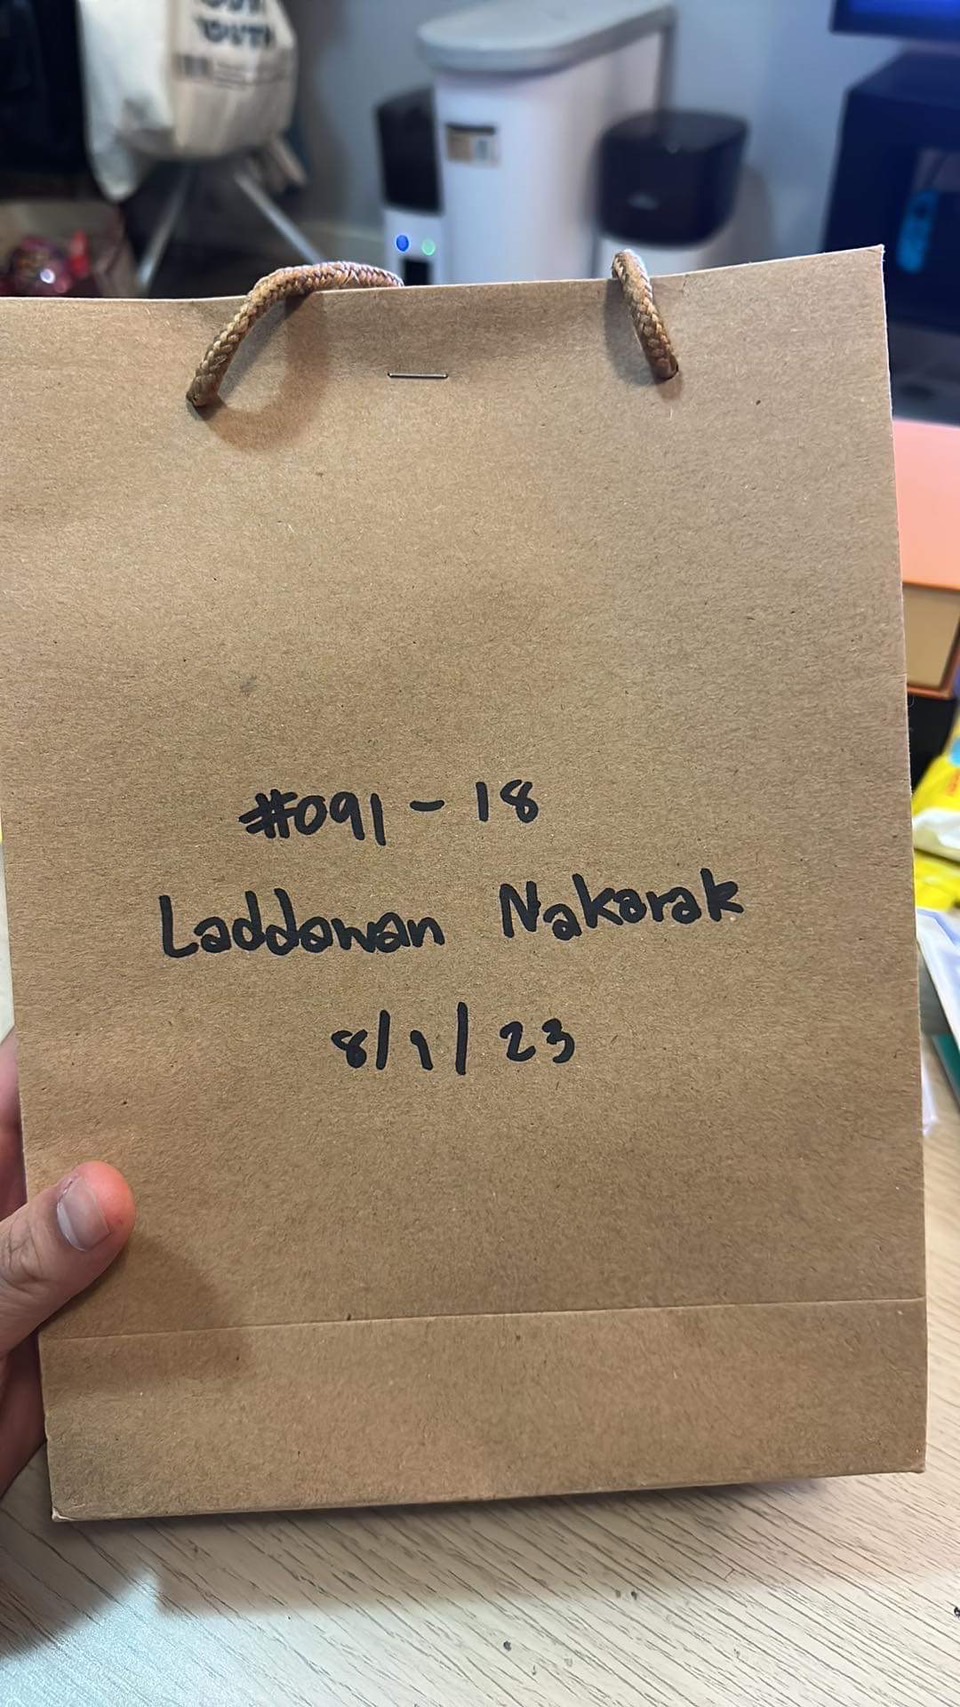 #091 - 18
Laddawan Nakarak
8/1/23